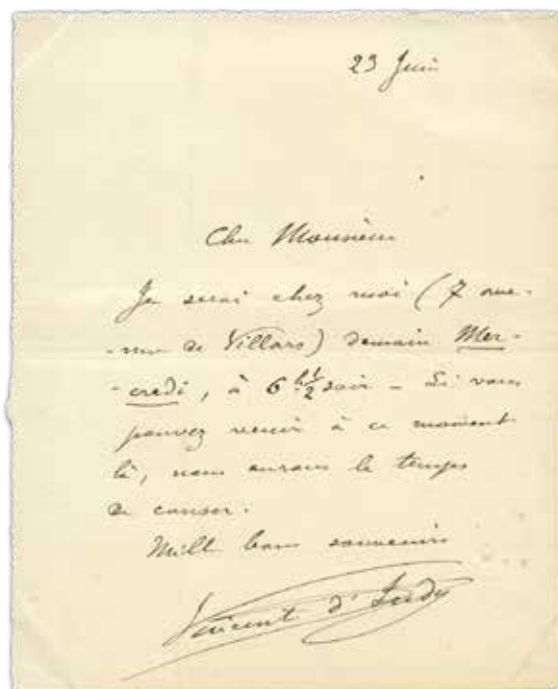 23 Juin
Cher Monsieur
Je serai chez moi (7 ave-
-nue de Villars) demain Mer-
-credi, à 6h ½ soir – Si vous
pouvez venir à ce moment
là, nous aurons le temps
de causer.
Mille bons souvenirs
Vincent d'Indy